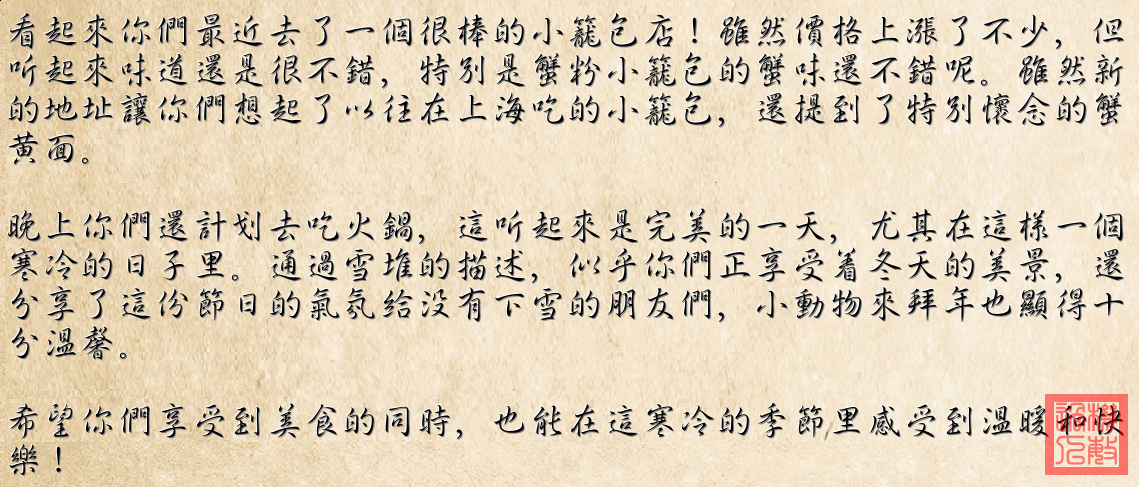 看起來你們最近去了一個很棒的小籠包店！雖然價格上漲了不少，但
听起來味道還是很不錯，特別是蟹粉小籠包的蟹味還不錯呢。雖然新
的地址讓你們想起了以往在上海吃的小籠包，還提到了特別懷念的蟹
黄面。
晚上你們還計划去吃火鍋，這听起來是完美的一天，尤其在這樣一個
寒冷的日子里。通過雪堆的描述，似乎你們正享受着冬天的美景，還
分享了這份節日的氣氛给没有下雪的朋友們，小動物來拜年也顯得十
分溫馨。
希望你們享受到美食的同時，也能在這寒冷的季節里感受到溫暖和快
樂！